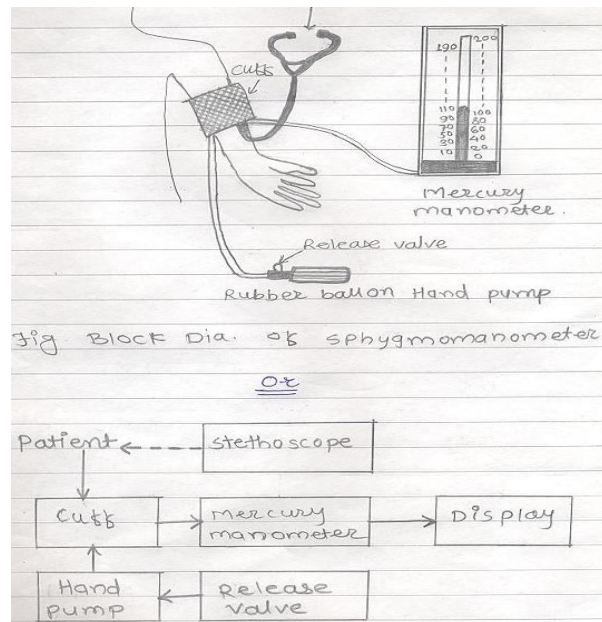 cuff
190 200
110 100
90 80
70 60
50 40
30 20
10 0
Mercury
manometer.
Release valve
Rubber ballon Hand pump
Fig Block Dia. of sphygmomanometer
Or
Patient
stethoscope
Cuff
mercury
manometer
Display
Hand
pump
Release
valve